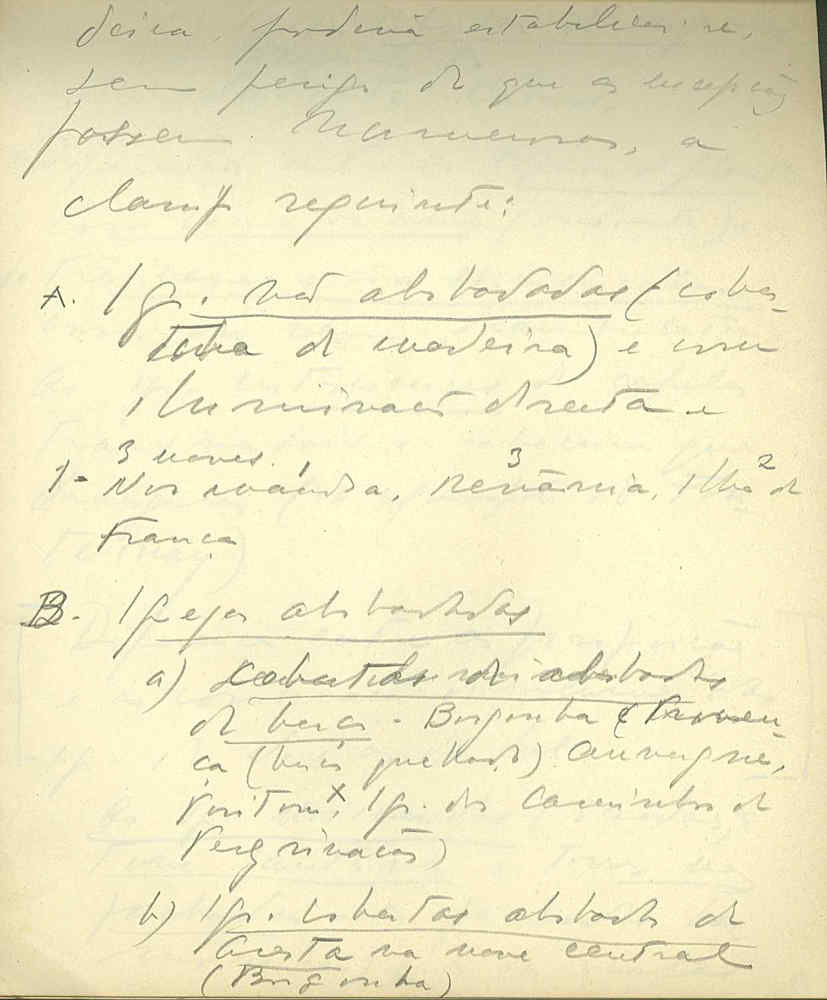 deira, poderia estabelecer-se,
sem perigo de que as excepções
fossem numerosas, a
seguinte:
A. Ig. não abobadadas (cober-
tura de madeira) e com
iluminação directa e
3 naves. 3 2
1- Normandia, Renânia, Ilha de
França
B. Igrejas abobadadas
a) cobertas abobadas
de berço - Borgonha e Proven-
ça (berço quebrado) Auvergne,
Poitou x, Ig. dos Caminhos de
Peregrinação)
b) Ig. cobertas abobada de
aresta na nave central
(Borgonha)